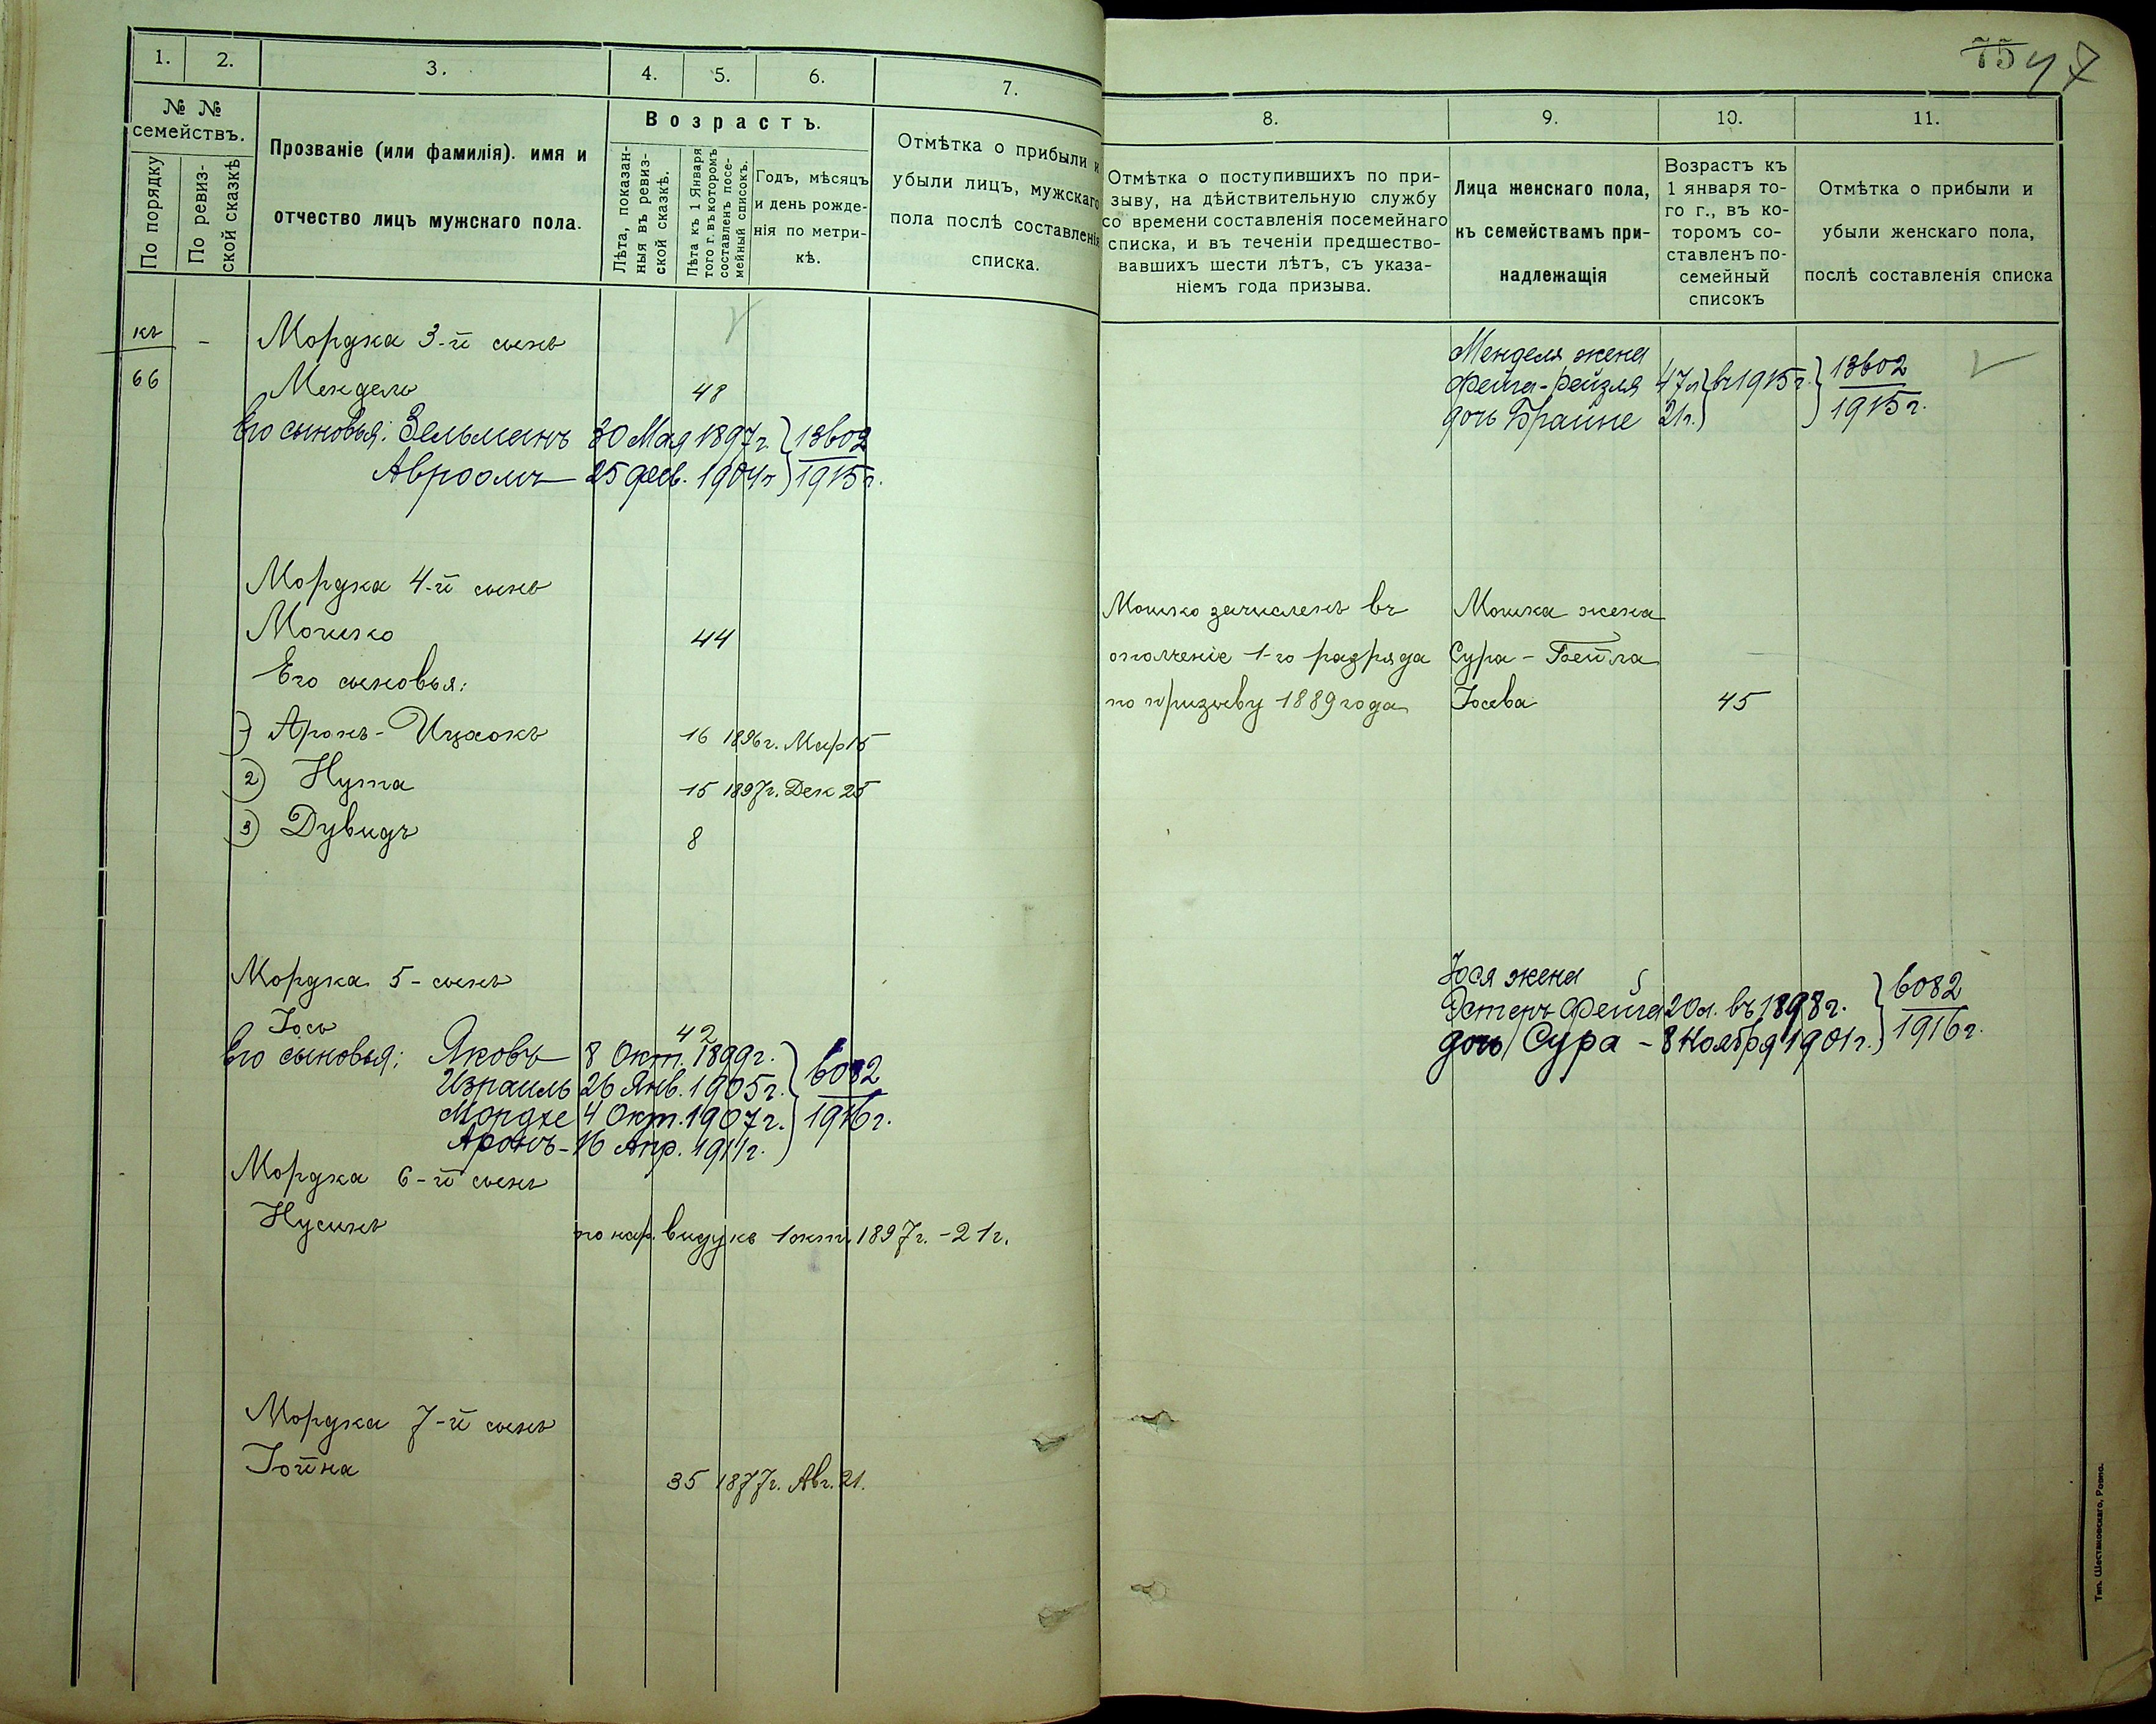 1. 2. 3. 4. 5. 6. 7.
№ №
семействъ.
По порядку
По ревиз-
ской сказкѣ
Прозваніе (или фамилія). имя и
отчество лицъ мужскаго пола.
Возрастъ.
Лѣта, показан-
ныя въ ревиз-
ской сказкѣ.
Лѣта къ 1 Января
того г. въ которомъ
составленъ посе-
мейный списокъ.
Годъ, мѣсяцъ
и день рожде-
нія по метри-
кѣ.
Отмѣтка о прибыли и
убыли лицъ, мужскаго
пола послѣ составленія
списка.
къ
66
-
Мордка 3-й сынъ
Мендель 48
Его сыновья: Зельманъ 30 Мая 1897г. } 13602
Авроомъ 25 фев. 1904г } 1915г.
Мордка 4-й сынъ
Мошко 44
Его сыновья:
1) Аронъ-Ицхокъ 16 1896г. Мар 15
2) Нута 15 1897г. Дек 25
3) Дувидъ 8
Мордка 5-сынъ
Іось 42
Его сыновья: Яковъ 8 Окт. 1899г.
Израиль 26 Янв. 1905г. } 6082
Мордке 4 Окт. 1907г. } 1916г.
Аронъ - 16 Апр. 1911г.
Мордка 6-й сынъ
Нусинъ по нар. виду къ 1 окт. 1897г. - 21г.
Мордка 7-й сынъ
Іойна 35 1877г. Авг. 21.
75
8. 9. 10. 11.
Отмѣтка о поступившихъ по при-
зыву, на дѣйствительную службу
со времени составленія посемейнаго
списка, и въ теченіи предшество-
вавшихъ шести лѣтъ, съ указа-
ніемъ года призыва.
Лица женскаго пола,
къ семействамъ при-
надлежащія
Возрастъ къ
1 января то-
го г., въ ко-
торомъ со-
ставленъ по-
семейный
списокъ
Отмѣтка о прибыли и
убыли женскаго пола,
послѣ составленія списка
Менделя жена
Фейга-Рейзля 47л } въ 1915г. } 13602
дочь Брайне 21г. } 1915г.
Мошко зачисленъ въ Мошка жена
ополченіе 1-го разряда Сура-Бейла
по призыву 1889 года Іосева 45
Іося жена
Эстеръ Фейга 20л. въ 1898г. } 6082
дочь Сура - 8 Ноября 1901г. } 1916г.
Тип. Шестаковскаго, Ровно.